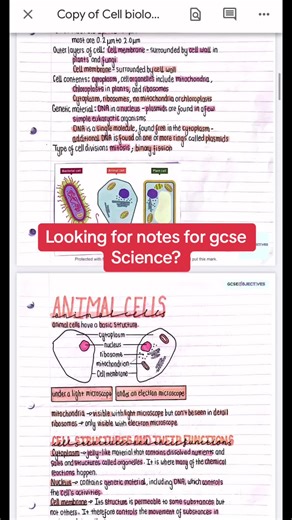 Copy of Cell biolo...
most are 0.2μm to 2.0μm
Outer layers of cell: Cell membrane - surrounded by cell wall in
plants and fungi
Cell membrane - surrounded by cell wall
Cell contents: cytoplasm, cell organelles include mitochondria,
chloroplasts in plants, and ribosomes
Cytoplasm, ribosomes, no mitochondria or chloroplasts
Genetic material: DNA in nucleus - plasmids are found in a few
simple eukaryotic organisms
DNA is a single molecule, found free in the cytoplasm -
additional DNA is found on one or more rings called plasmids
Type of cell division: mitosis, binary fission
Bacterial cell
Animal cell
Plant cell
Looking for notes for gcse
Science?
GCSE OBJECTIVES
ANIMAL CELLS
animal cells
animal cells have a basic structure.
cytoplasm
nucleus
ribosome
mitochondrion
cell membrane
under a light microscope
under an electron microscope
mitochondria → visible with light microscope but can't be seen in detail
ribosomes → only visible with electron microscope.
CELL STRUCTURES AND THEIR FUNCTIONS
Cytoplasm → jelly-like material that contains dissolved nutrients and
salts and structures called organelles. It is where many of the chemical
reactions happen.
Nucleus → contains genetic material, including DNA, which controls
the cell's activities.
Cell membrane → Its structure is permeable to some substances but
not others. It therefore controls the movement of substances in